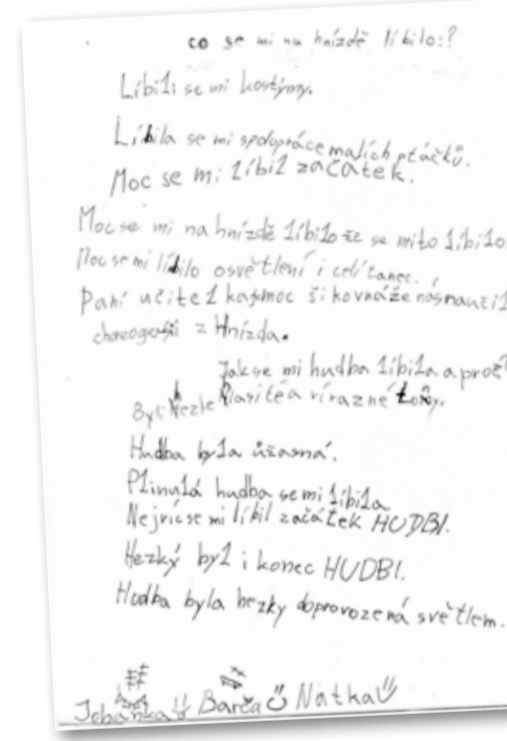 co se mi na hnízdě líbilo:?
Líbili se mi kostýmy.
Líbila se mi spolupráce malích ptáčků.
Moc se mi líbil začátek.
Moc se mi na hnízdě líbilo že se mi to líbilo
Moc se mi líbilo osvětlení i celí tanec.
Paní učitelka moc šikovná že nás naučil
choreografii z Hnízda.
Jak se mi hudba líbila a proč
Byli hezke hlasité a výrazné tony.
Hudba byla úžasná.
Plinulá hudba se mi líbila
Nejvíc se mi líbil začátek HUDBI.
Hezký byl i konec HUDBI.
Hudba byla hezky doprovozená světlem.
Johanka Barča Natka